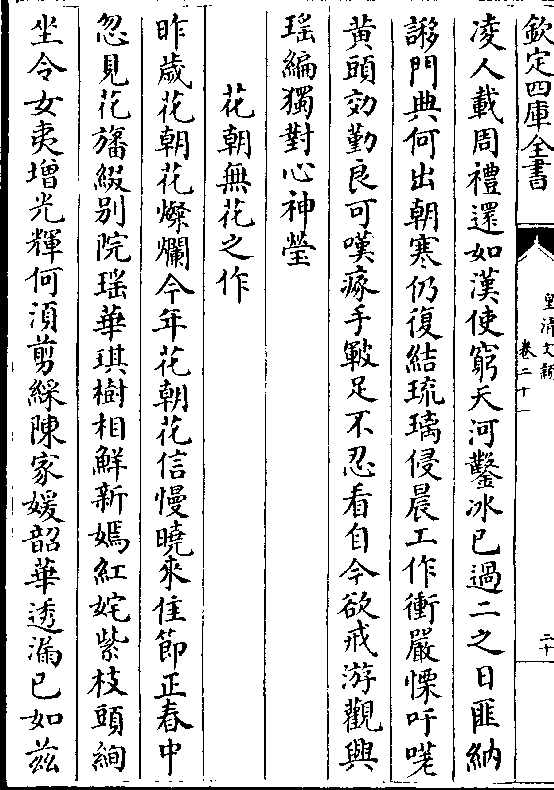 欽定四庫全書
皇清文穎
卷二十一
二十
凌人載周禮還如漢使窮天河鑿冰已過二之日匪納
謻門典何出朝寒仍復結琉璃侵晨工作衝嚴慄吁嗟
黄頭効勤良可嘆瘃手皸足不忍看自今欲戒游觀興
瑶編獨對心神瑩
花朝無花之作
昨歳花朝花爛爛今年花朝花信慢曉來佳節正春中
忽見花旛綴別院瑶華琪樹相鮮新嫣紅姹紫枝頭絢
坐令女夷增光輝何湏剪綵陳家媛韶華透漏已如兹